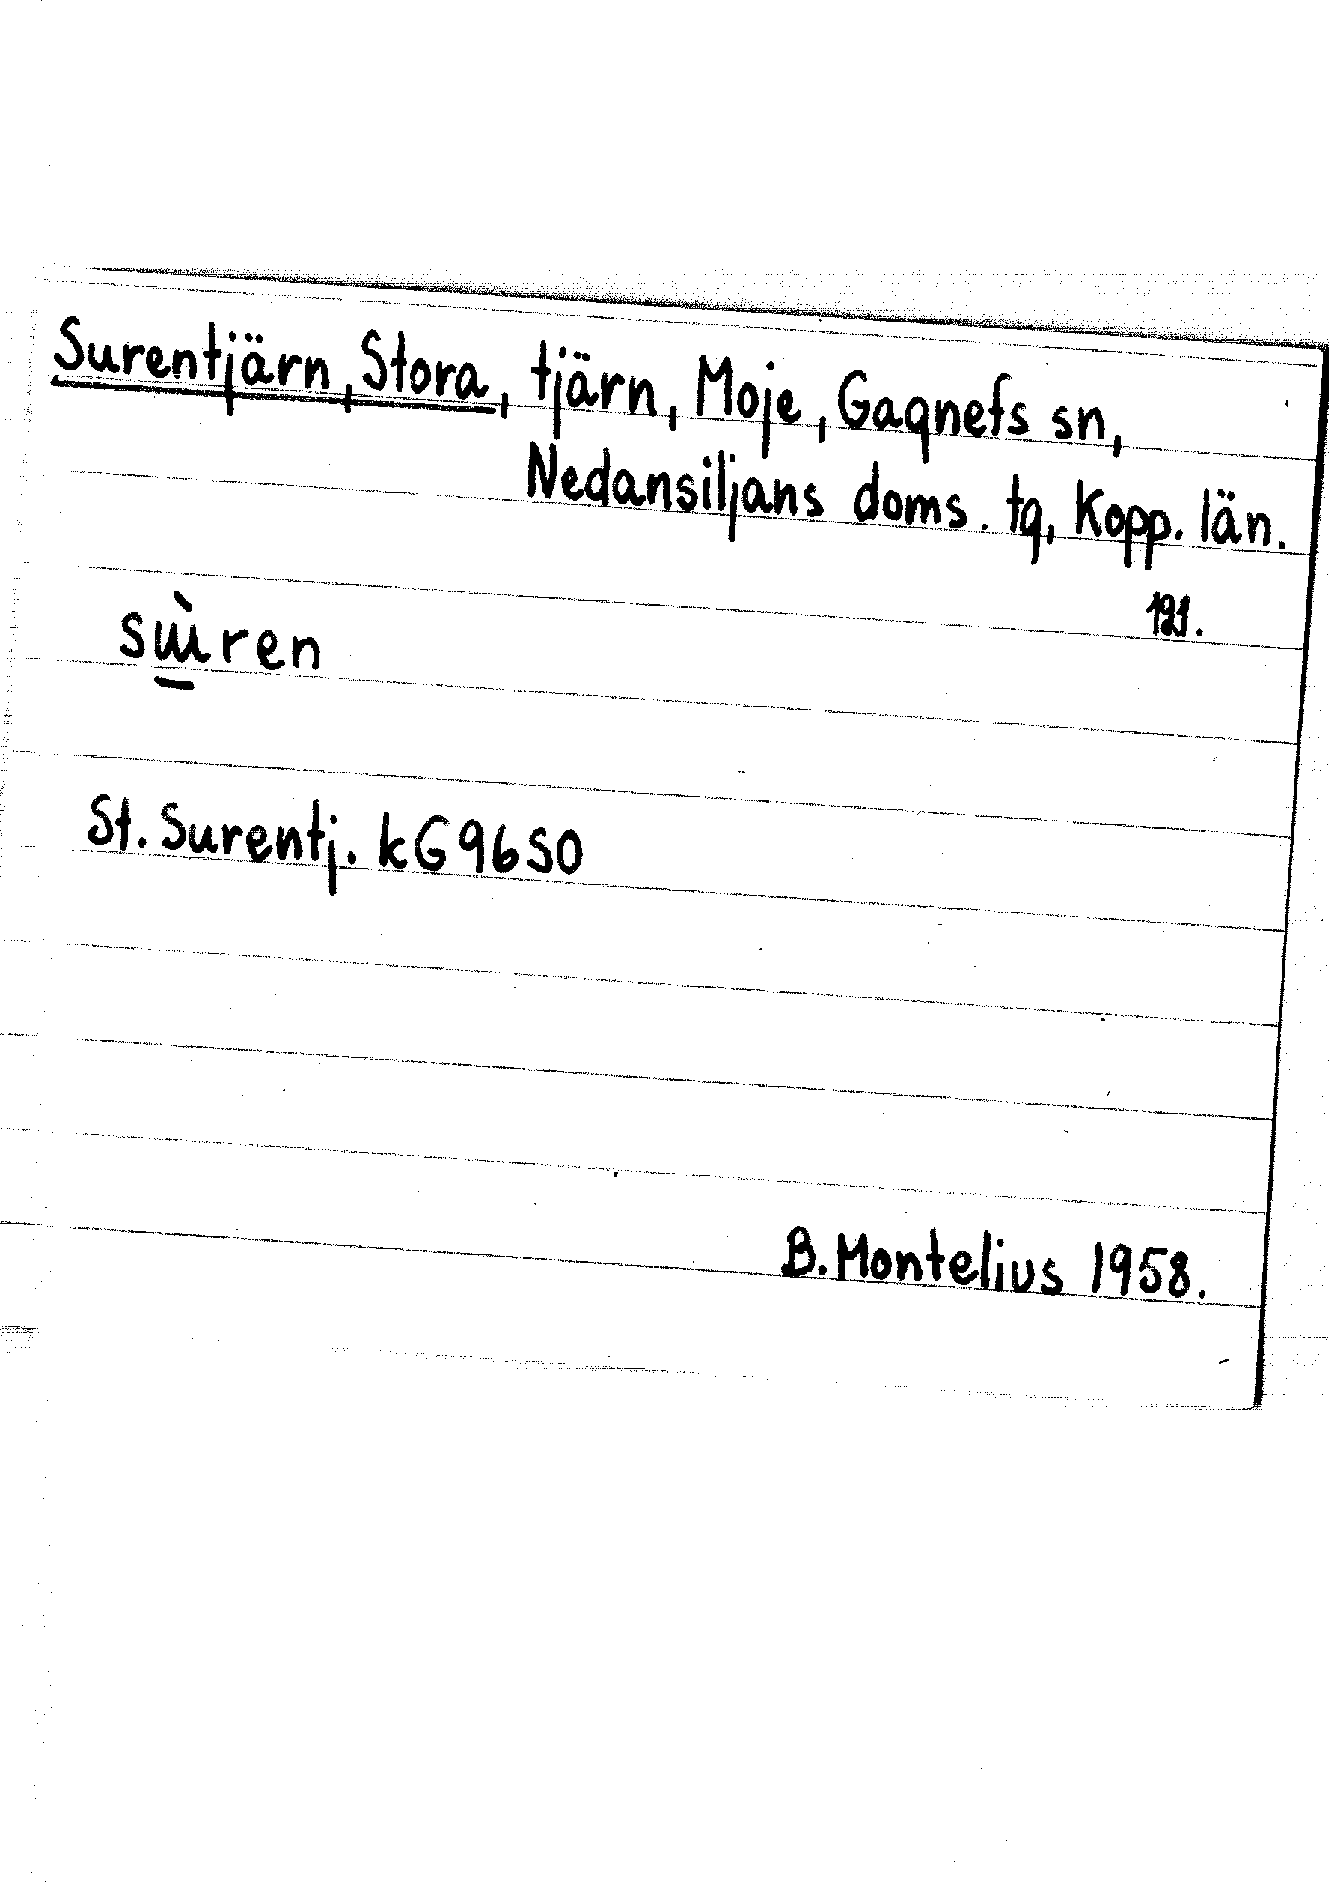 Surentjärn, Stora, tjärn, Moje, Gagnefs sn,
Nedansiljans doms. tg, Kopp. län.
121.
sɯ̱̀ren
St. Surentj. kG96SO
B. Montelius 1958.